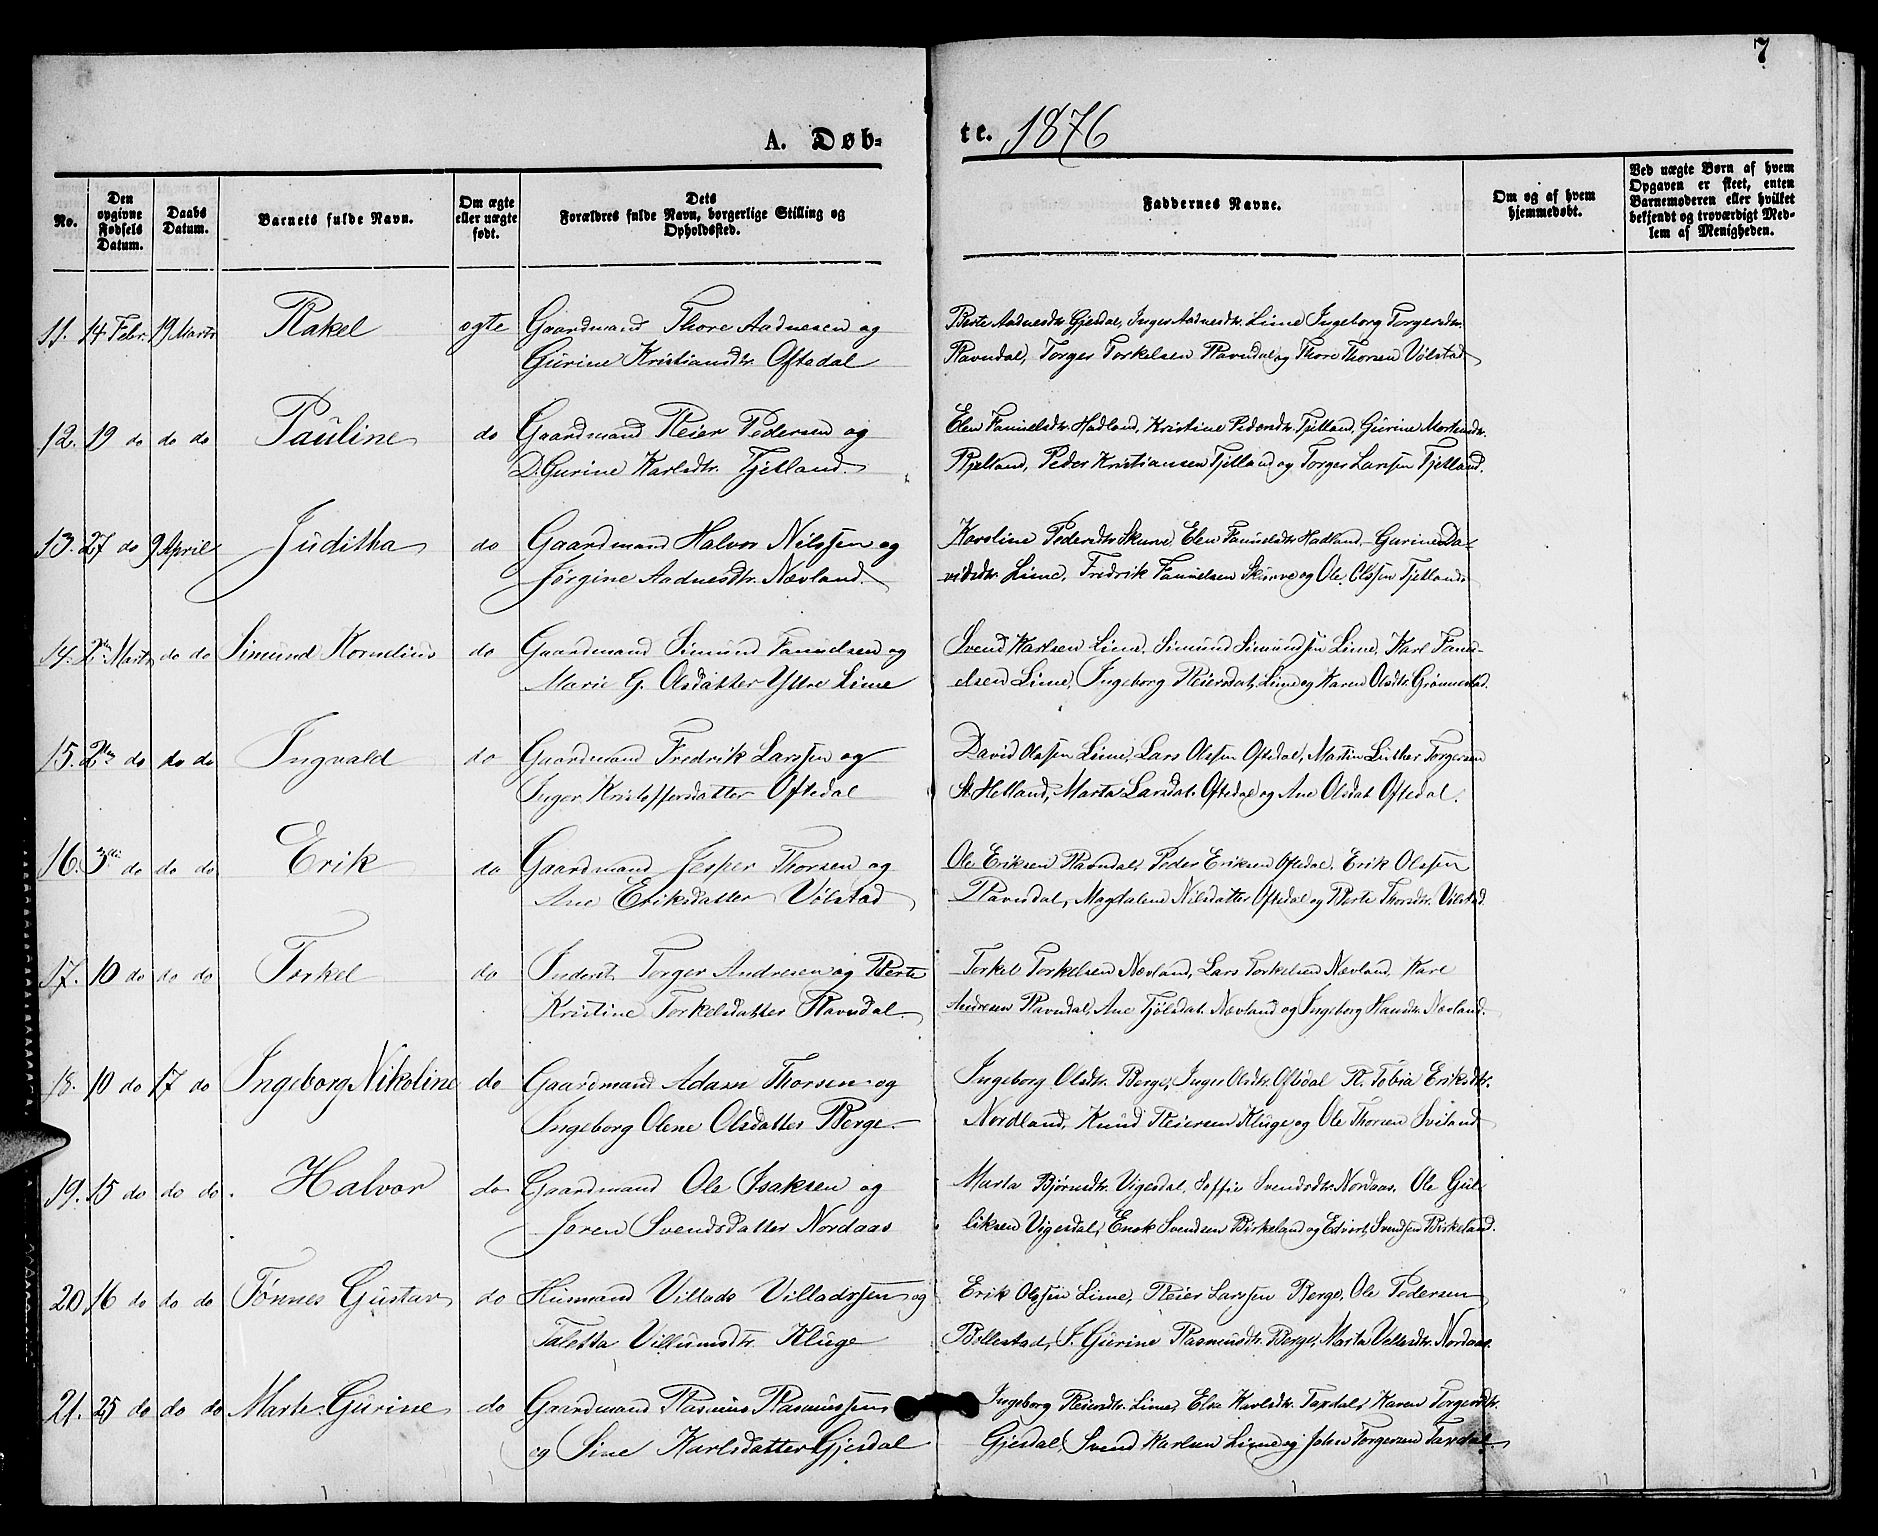 7
A. Døb-
te. 1876
No.
Den opgivne Fødsels Datum.
Daabs Datum.
Barnets fulde Navn.
Om ægte eller uægte født.
Dets Forældres fulde Navn, borgerlige Stilling og Opholdssted.
Faddernes Navne.
Om og af hvem hjemmedøbt.
Ved uægte Børn af hvem Opgaven er skeet, enten Barnemoderen eller hvilket bekjendt og troværdigt Medlem af Menigheden.
11. 14 Febr. 19 Marts Rakel ægte Gaardmand Thore Aadnesen og
Gurine Kristiansdtr. Oftedal
Berte Aadnesdtr. Gjesdal, Inger Aadnesdtr. Lime Ingeborg Torgersdtr.
Ravndal, Torger Torkelsen Ravndal og Thore Thorsen Vølstad
12. 19 do do do Pauline do Gaardmand Reier Pedersen og
D. Gurine Karlsdtr. Fjetland.
Elen Fanuelsdtr. Hadland, Kristine Pedersdtr. Fjetland, Gurine Mortensdtr.
Peder Kristiansen Fjetland og Torger Larssen Fjetland.
13. 27 do 9 April Juditha do Gaardmand Halvor Nilssen og
Jørgine Aadnesdtr. Nævland.
Karoline Pedersdtr. Skurve, Elen Fanuelsdtr. Hadland, Gurine Da-
vidsdtr. Lime, Fredrik Fanuelsen Skurve og Ole Olssen Fjetland
14. 2den Marts do do Simund Kornelius do Gaardmand Simund Fanuelsen og
Marie G. Olsdatter Yttre Lime
Svend Karlsen Lime, Simund Simundsen Lime, Karl Fanu-
elsen Lime, Ingeborg Reiersdat. Lime og Karen Olsdtr. Grønnestad.
15. 2den do do do Ingvald do Gaardmand Fredrik Larssen og
Inger Kristoffersdatter Oftedal
David Olssen Lime, Lars Olssen Oftedal, Martin Luther Torgersen
St. Helland, Marta Larsdat. Oftedal og Ane Olsdat. Oftedal.
16. 3die do do do Erik do Gaardmand Jesper Thorsen og
Ane Eriksdatter Vølstad
Ole Eriksen Ravndal, Peder Eriksen Oftedal, Erik Olssen
Ravndal, Magdalene Nilsdatter Oftedal og Berte Thorsdtr. Vølstad.
17. 10 do do do Torkel do Inderst. Torger Andresen og Berte
Kristine Torkelsdatter Ravndal.
Torkel Torkelsen Nævland, Lars Torkelsen Nævland, Karl
Andresen Ravndal, Ane Fjølsdat. Nævland og Ingeborg Hansdtr. Nævland.
18. 10 do 17 do Ingeborg Nikoline do Gaardmand Adam Thorsen og
Ingeborg Olene Olsdatter Berge.
Ingeborg Olsdtr. Berge, Inger Olsdtr. Oftedal R. Tobia Eriksdtr.
Nordland, Knud Reiersen Kluge og Ole Thorsen Sviland
19. 15 do do do. Halvor do Gaardmand Ole Isaksen og
Joren Svendsdatter Nordaas
Marta Bjørnsdtr. Vigesdal, Soffie Svendsdtr. Nordaas, Ole Gul-
liksen Vigesdal, Enok Svendsen Birkeland og Edvert Svendsen Birkeland.
20. 16 do do do Tønnes Gustav do Husmand Villads Villadssen og
Taletta Villumsdtr. Kluge
Erik Olssen Lime, Reier Larssen Berge, Ole Pedersen
Bollestad, J. Gurine Rasmusdtr. Berge, Marta Villadsdtr. Nordaas.
21. 25 do do do Marte Gurine do Gaardmand Rasmus Rasmussen
og Sine Karlsdatter Gjesdal
Ingeborg Reiersdtr. Lime, Elsa Karlsdtr. Taxdal, Karen Torgersdtr.
Gjesdal, Svend Karlsen Lime og John Torgersen Taxdal